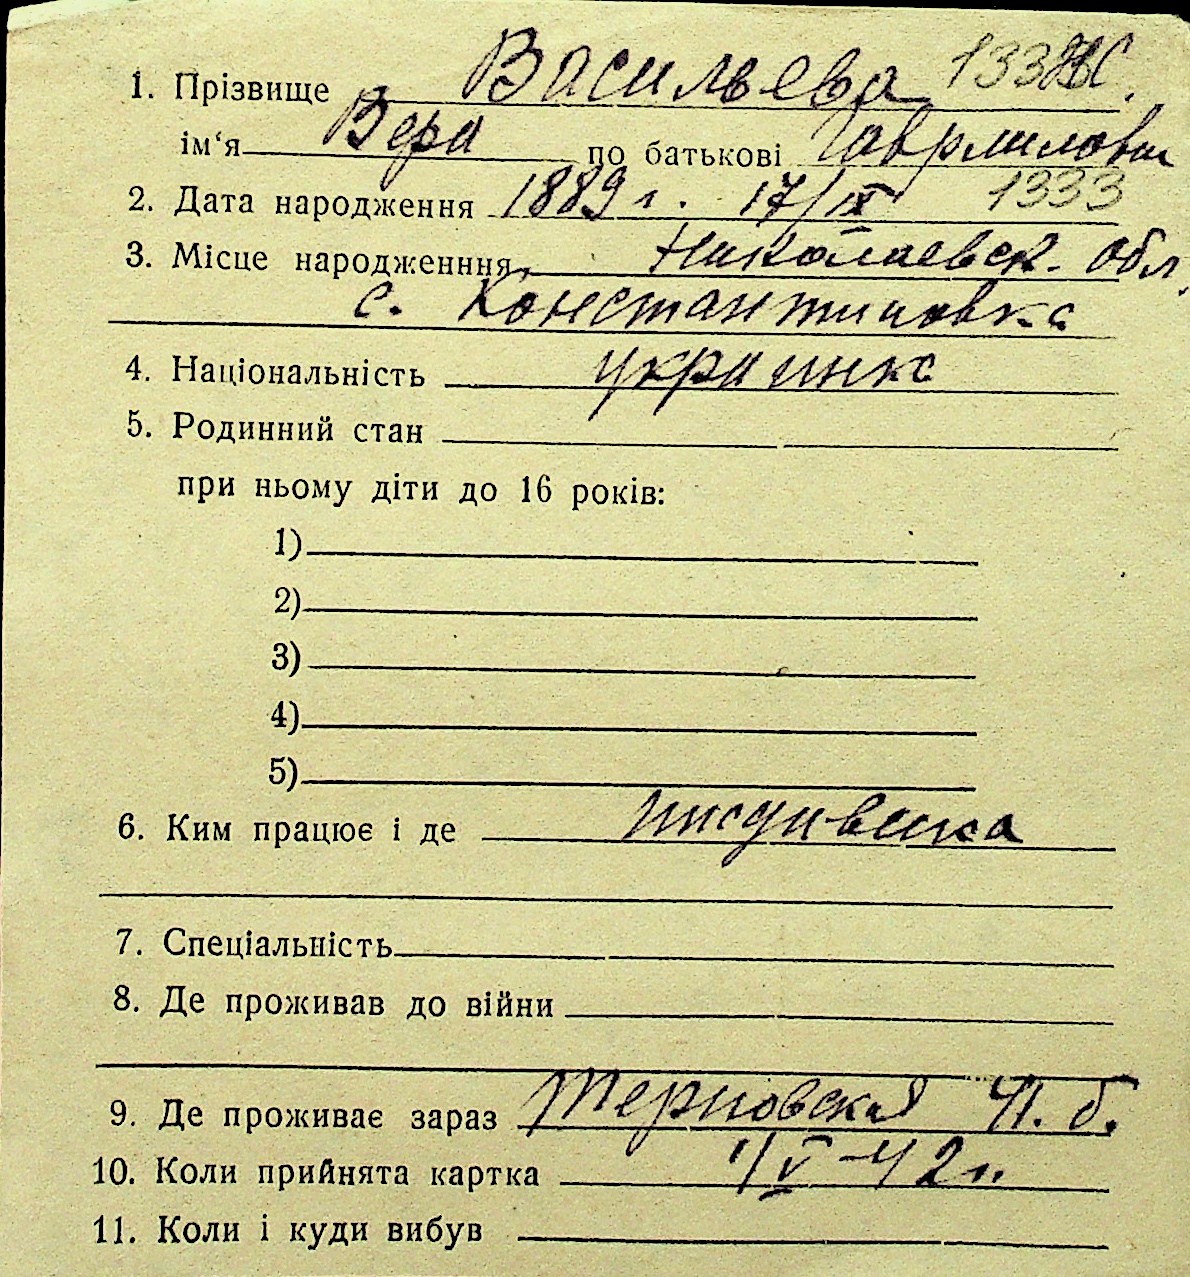 1. Прізвище Васильева 133
ім‘я Вера по батькові Гавриловна
2. Дата народження 1889 г. 17/IX 1333
3. Місце народженння, Николаевск. обл.
с. Константиновка
4. Національність украинка
5. Родинний стан
при ньому діти до 16 років:
1)
2)
3)
4)
5)
6. Ким працює і де иждивенка
7. Спеціальність
8. Де проживав до війни
9. Де проживає зараз Терновская 41. б.
10. Коли прийнята картка 1/V-42 г.
11. Коли і куди вибув